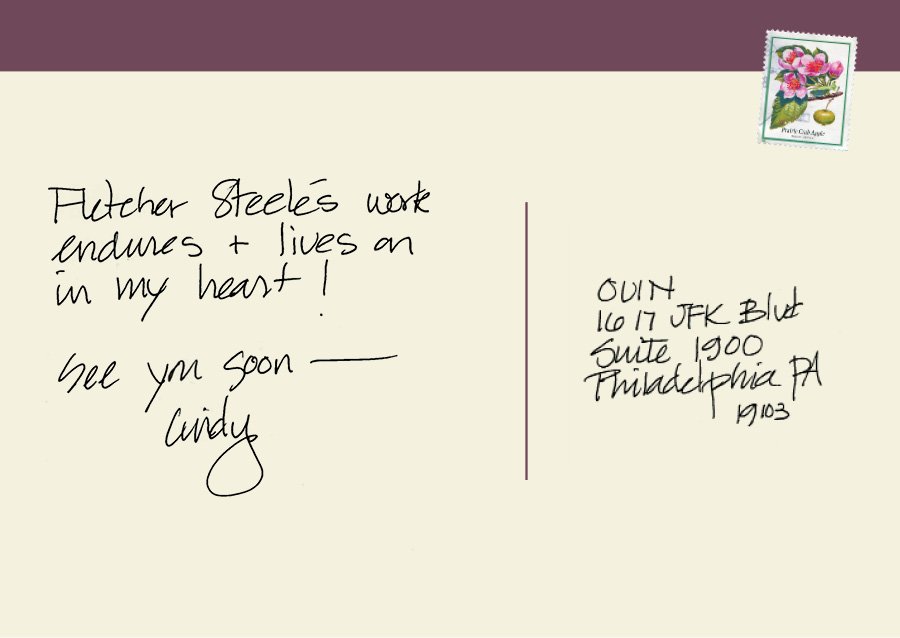 Fletcher Steele's work
endures + lives on
in my heart!
See you soon —
Cindy
OLIN
1617 JFK Blvd
Suite 1900
Philadelphia PA
19103
Prairie Crab Apple